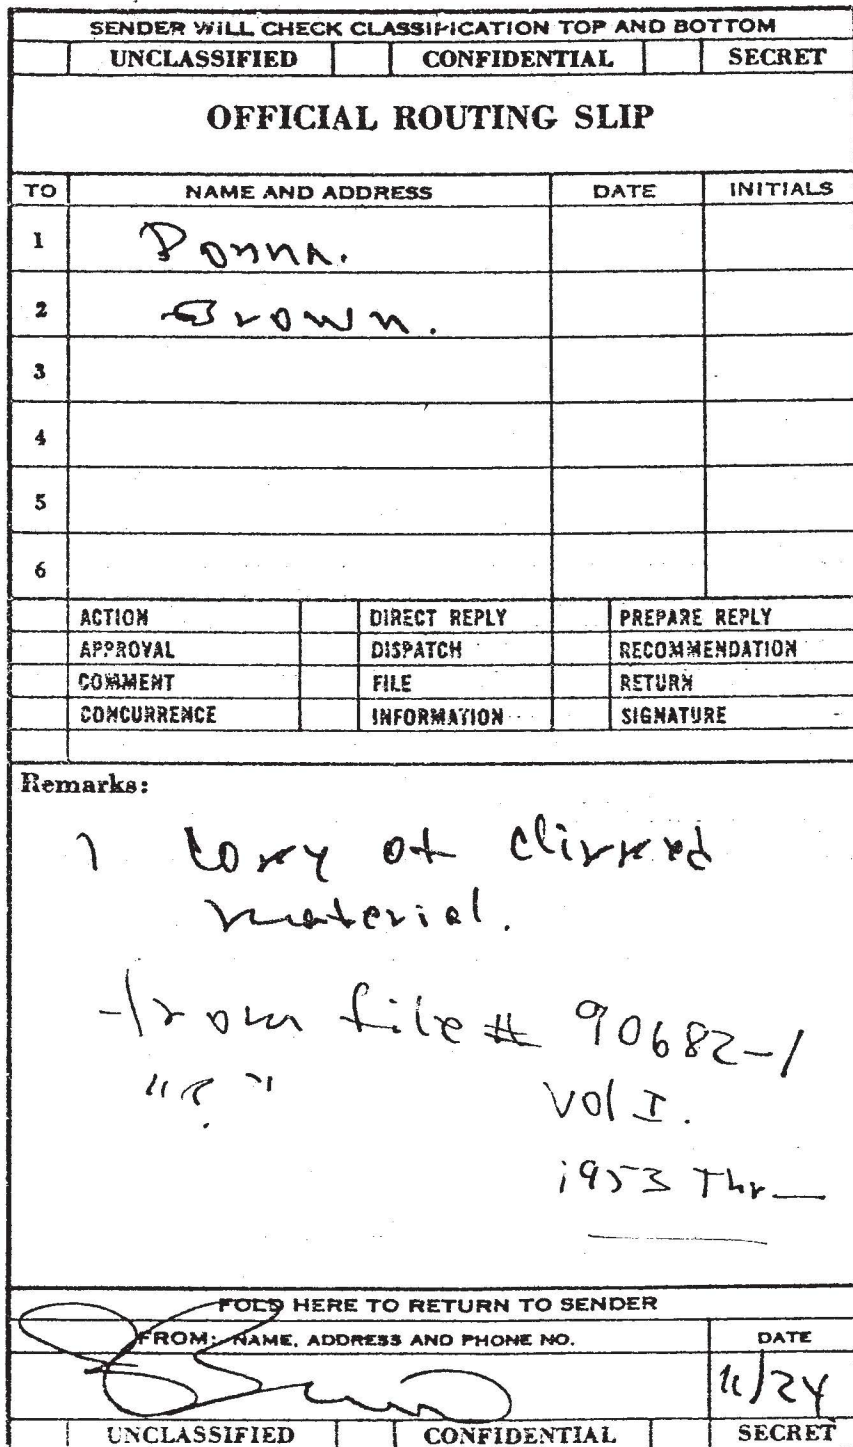 SENDER WILL CHECK CLASSIFICATION TOP AND BOTTOM
UNCLASSIFIED CONFIDENTIAL SECRET
OFFICIAL ROUTING SLIP
TO NAME AND ADDRESS DATE INITIALS
1 Donna.
2 Brown.
3
4
5
6
ACTION DIRECT REPLY PREPARE REPLY
APPROVAL DISPATCH RECOMMENDATION
COMMENT FILE RETURN
CONCURRENCE INFORMATION SIGNATURE
Remarks:
1 copy of clipped
material.
from file # 90682-1
"?" Vol I.
1953 Thr
FOLD HERE TO RETURN TO SENDER
FROM: NAME, ADDRESS AND PHONE NO. DATE
11/24
UNCLASSIFIED CONFIDENTIAL SECRET